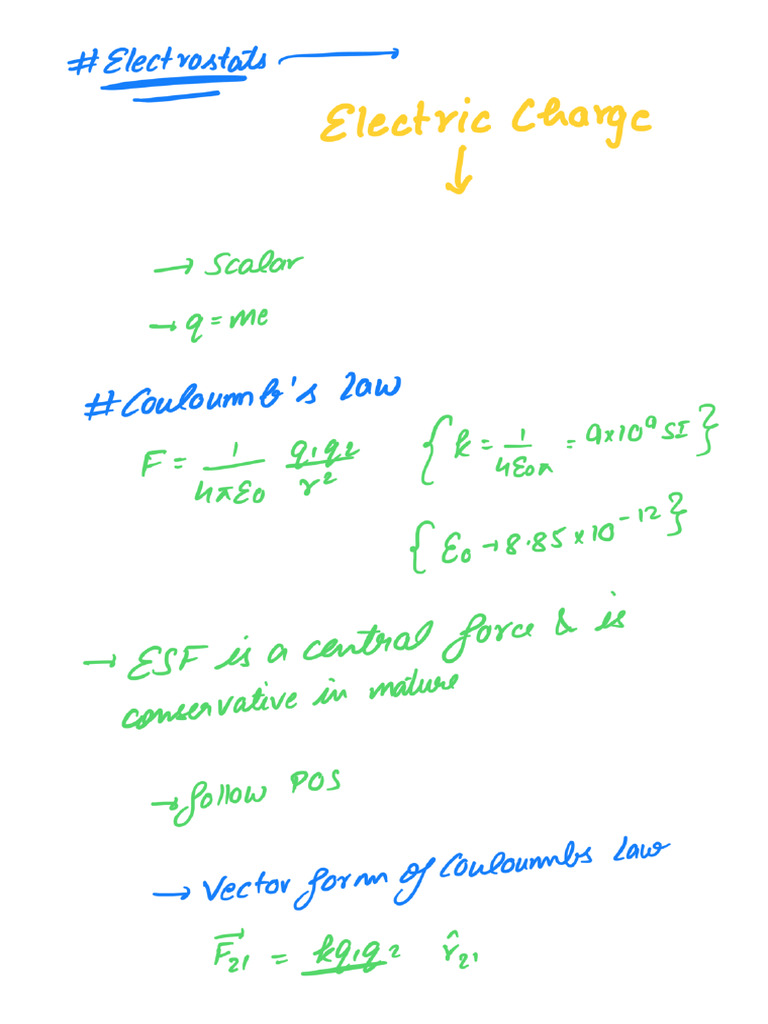 # Electrostats →
Electric Charge
↓
→ Scalar
→ q = ne
# Couloumb's law
F = 1/4πε₀ q₁q₂/r² {k = 1/4ε₀π = 9×10⁹ SI}
{ε₀ → 8.85 × 10⁻¹²}
→ ESF is a central force & is
conservative in nature
→ follow POS
→ Vector form of Couloumbs law
F⃗₂₁ = kq₁q₂ r̂₂₁